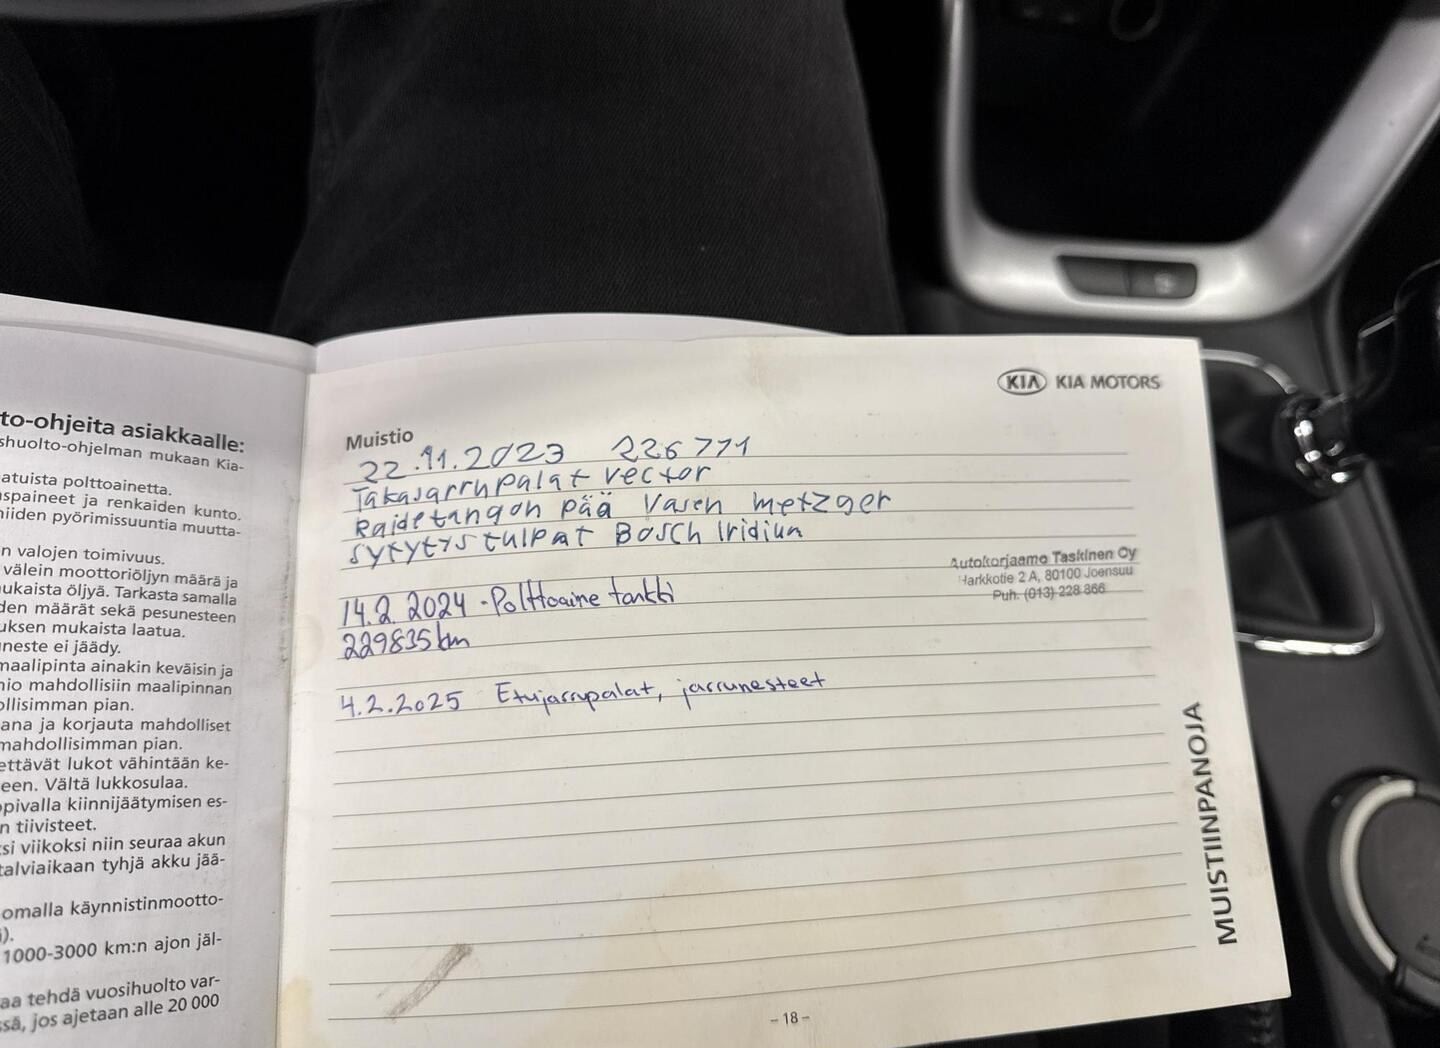 to-ohjeita asiakkaalle:
shuolto-ohjelman mukaan Kia-
atuista polttoainetta.
spaineet ja renkaiden kunto.
niiden pyörimissuuntia muutta-
n valojen toimivuus.
välein moottoriöljyn määrä ja
ukaista öljyä. Tarkasta samalla
den määrät sekä pesunesteen
uksen mukaista laatua.
neste ei jäädy.
maalipinta ainakin keväisin ja
nio mahdollisiin maalipinnan
ollisimman pian.
ana ja korjauta mahdolliset
mahdollisimman pian.
ettävät lukot vähintään ke-
een. Vältä lukkosulaa.
opivalla kiinnijäätymisen es-
n tiivisteet.
si viikoksi niin seuraa akun
talviaikaan tyhjä akku jää-
omalla käynnistinmootto-
).
1000-3000 km:n ajon jäl-
aa tehdä vuosihuolto var-
ssä, jos ajetaan alle 20 000
KIA KIA MOTORS
Muistio
22.11.2023 226771
Takajarrupalat vector
Raidetangon pää Vasen metzger
sytytystulpat Bosch Iridiun
Autokorjaamo Taskinen Oy
Harkkotie 2 A, 80100 Joensuu
Puh. (013) 228 866
14.2.2024 - Polttoaine tankki
229835 km
4.2.2025 Etujarrupalat, jarrunesteet
MUISTIINPANOJA
- 18 -